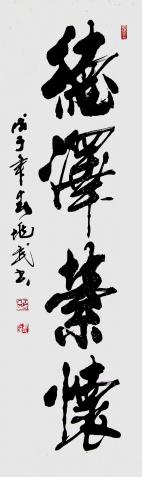 德澤縈懷
戊子年春武书